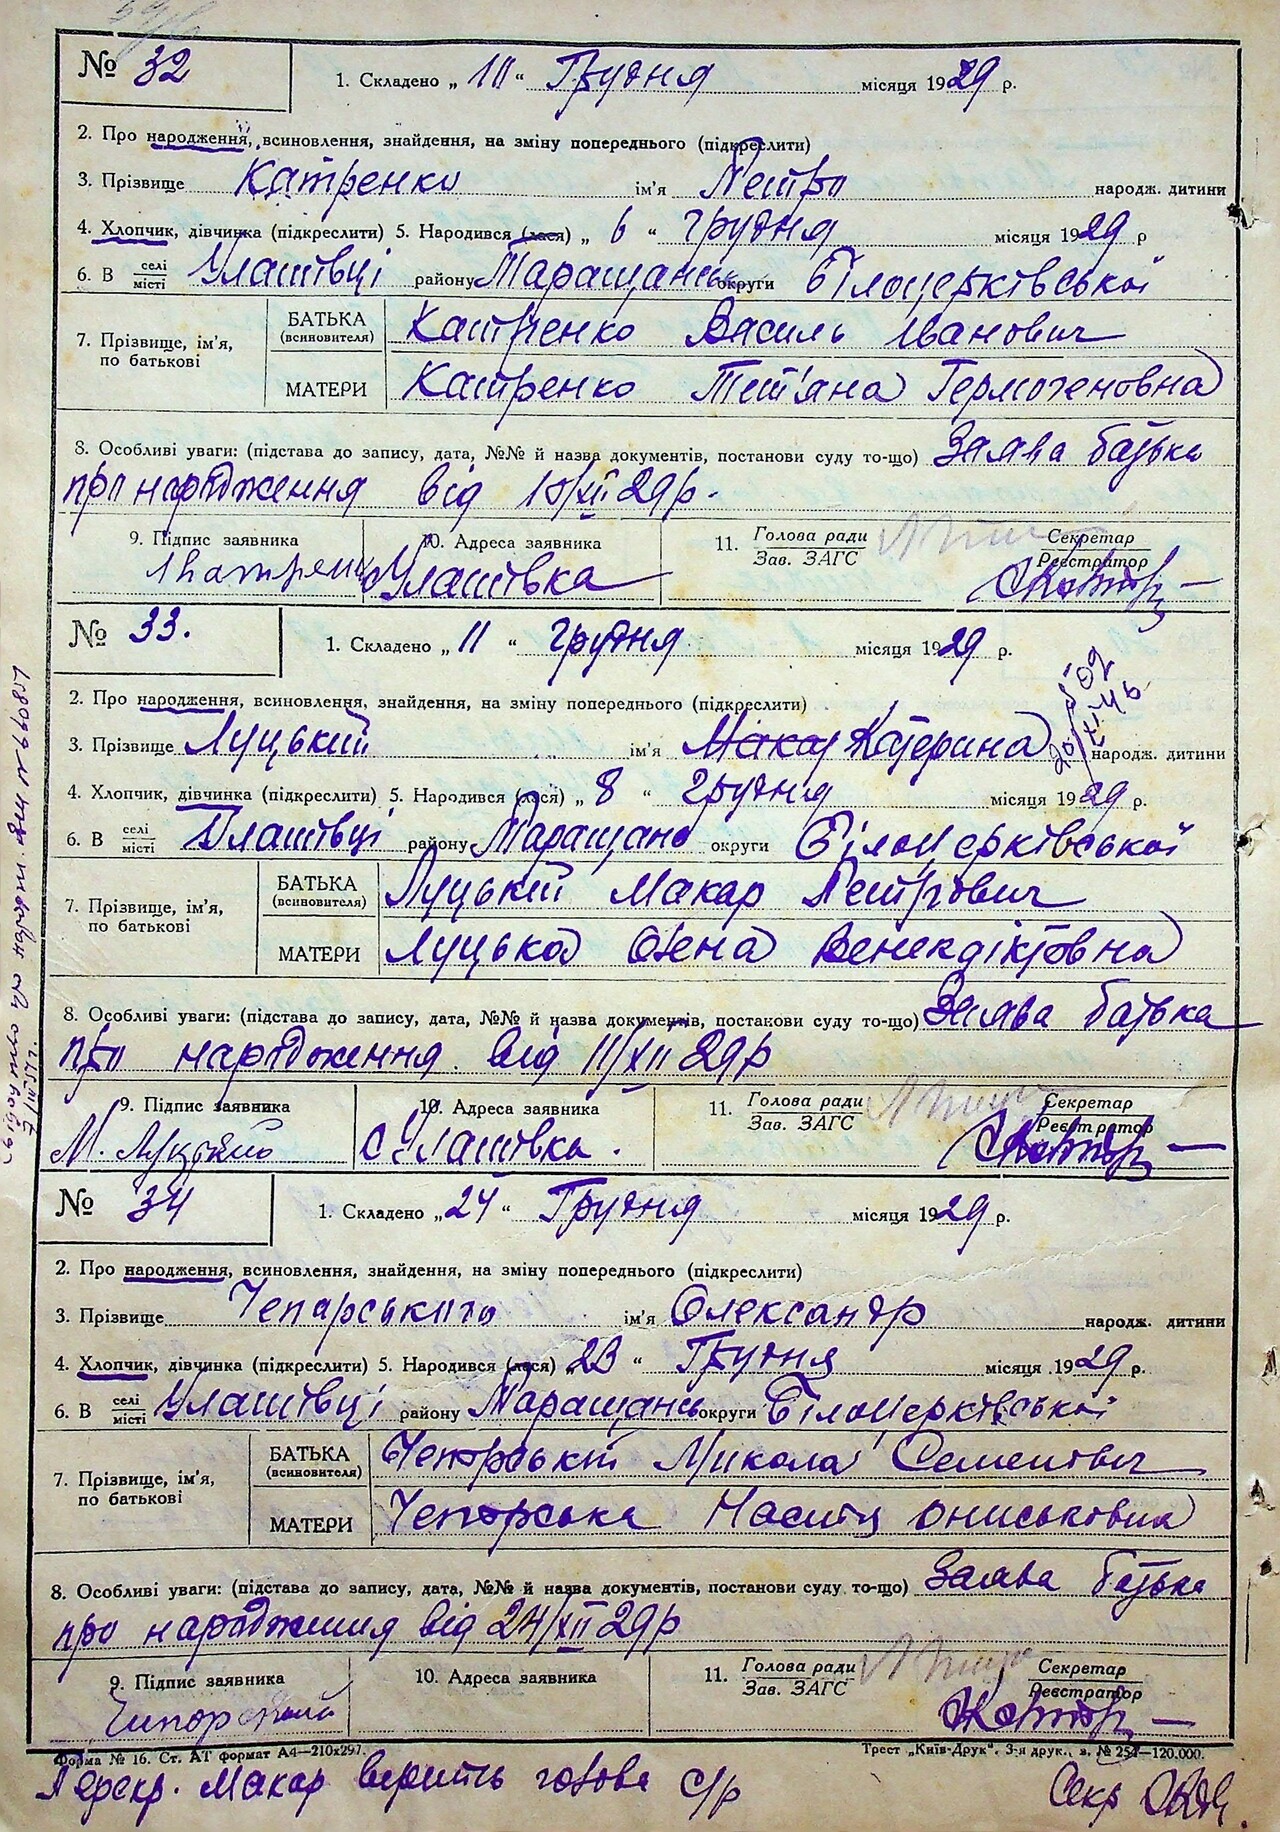 № 32
1. Складено „ 10 “ Грудня місяця 1929 р.
2. Про народження, всиновлення, знайдення, на зміну попереднього (підкреслити)
3. Прізвище Катренко ім'я Петро народж. дитини
4. Хлопчик, дівчинка (підкреслити) 5. Народився (лася) „ 6 “ грудня місяця 1929 р
6. В селі місті Улашівці району Таращансь округи Білоцерківської
7. Прізвище, ім'я, по батькові
БАТЬКА (всиновителя) Катренко Василь Іванович
МАТЕРИ Катренко Тетяна Гермогеновна
8. Особливі уваги: (підстава до запису, дата, №№ й назва документів, постанови суду то-що) Заява батька
про народження від 10/XII 29р.
9. Підпис заявника 10. Адреса заявника 11. Голова ради Зав. ЗАГС Секретар Реєстратор
Улашівка
№ 33.
1. Складено „ 11 “ грудня місяця 1929 р.
2. Про народження, всиновлення, знайдення, на зміну попереднього (підкреслити)
3. Прізвище Луцький ім'я Макар Катерина народж. дитини
4. Хлопчик, дівчинка (підкреслити) 5. Народився (лася) „ 8 “ грудня місяця 1929 р.
6. В селі місті Улашівці району Таращанс округи Білоцерківської
7. Прізвище, ім'я, по батькові
БАТЬКА (всиновителя) Луцькій Макар Петрович
МАТЕРИ Луцька Олена Венекдіктовна
8. Особливі уваги: (підстава до запису, дата, №№ й назва документів, постанови суду то-що) Заява батька
про народження від 11/XII 29р
9. Підпис заявника 10. Адреса заявника 11. Голова ради Зав. ЗАГС Секретар Реєстратор
М. Луцький с Улашівка.
№ 34
1. Складено „ 24 “ Грудня місяця 1929 р.
2. Про народження, всиновлення, знайдення, на зміну попереднього (підкреслити)
3. Прізвище Чепарського ім'я Олександр народж. дитини
4. Хлопчик, дівчинка (підкреслити) 5. Народився (лася) 23 “ Грудня місяця 1929 р.
6. В селі місті Улашівці району Таращансь округи Білоцерківської
7. Прізвище, ім'я, по батькові
БАТЬКА (всиновителя) Чепорській Микола Семенович
МАТЕРИ Чепорська Настя Ониськовна
8. Особливі уваги: (підстава до запису, дата, №№ й назва документів, постанови суду то-що) Заява батька
про народження від 24/XII 29р
9. Підпис заявника 10. Адреса заявника 11. Голова ради Зав. ЗАГС Секретар Реєстратор
Форма № 16. Ст. АТ формат А4—210x297. Трест „Київ-Друк“, 3-я друк., в. № 254—120.000.
Перекр. Макар вірить голова с/р Секр